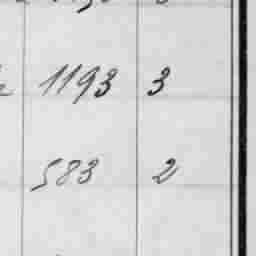 1193 3
583 2